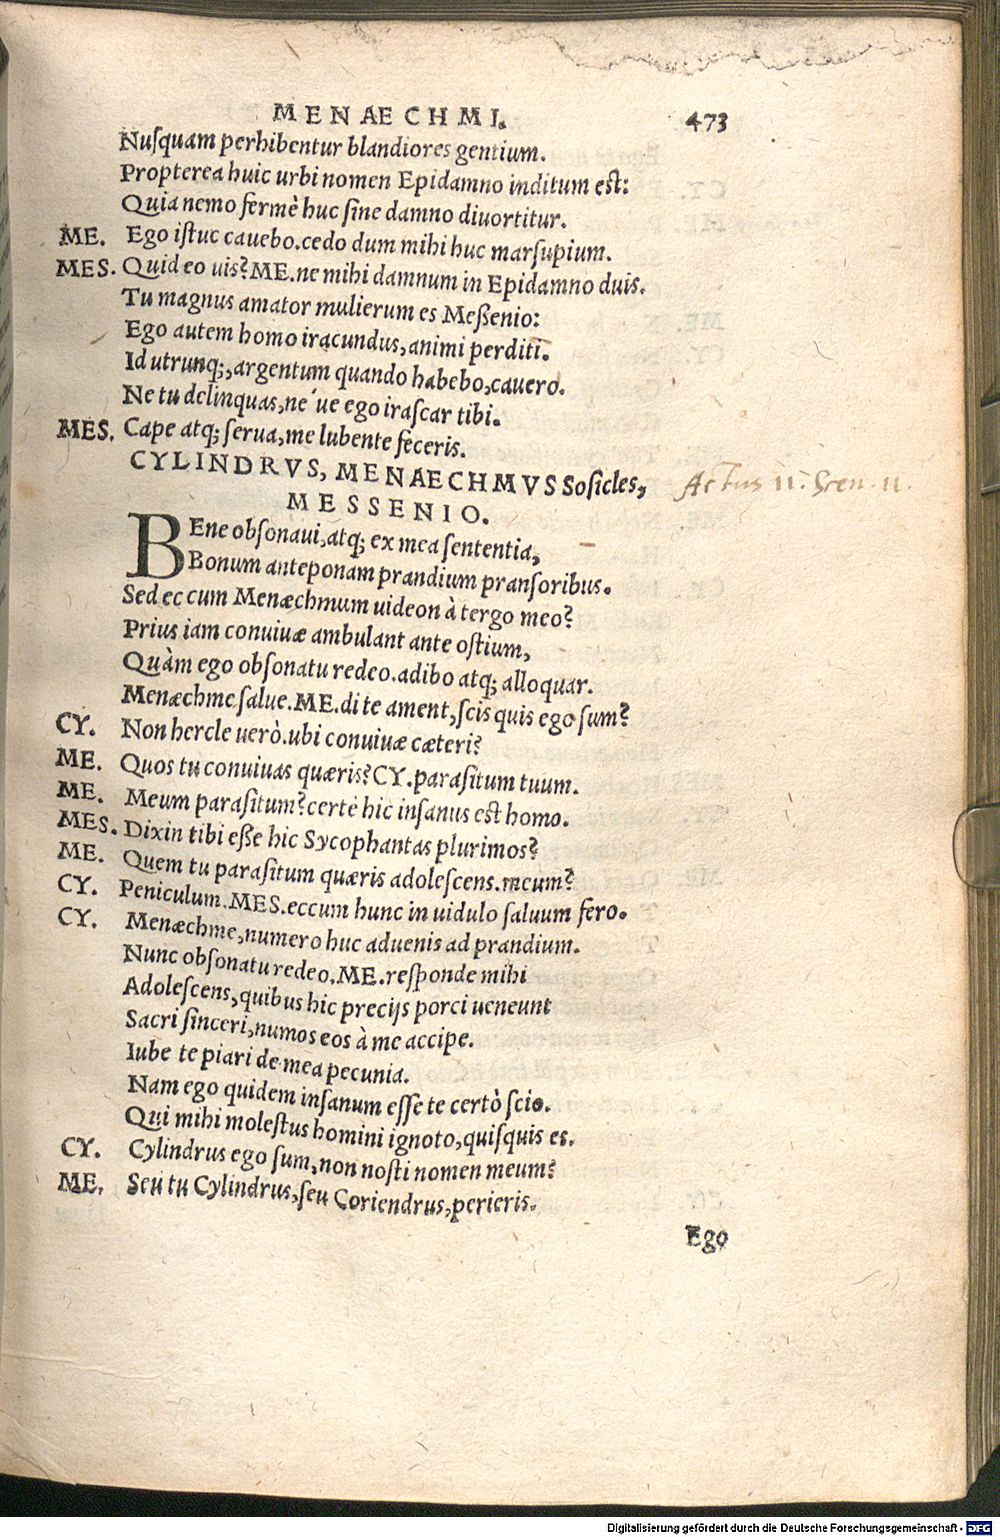 MENAECHMI. 473
Nuſquam perhibentur blandiores gentium.
Propterea huic urbi nomen Epidamno inditum est:
Quia nemo fermè huc ſine damno diuortitur.
ME. Ego iſtuc cauebo.cedo dum mihi huc marſupium.
MES. Quid eo uis? ME.ne mihi damnum in Epidamno duis.
Tu magnus amator mulierum es Meßenio:
Ego autem homo iracundus,animi perditi.
Id utrunq;,argentum quando habebo,cauero.
Ne tu delinquas,ne´ue ego iraſcar tibi.
MES. Cape atq; ſerua,me lubente feceris.
CYLINDRVS, MENAECHMVS Soſicles, Actus II. Scen. II.
MESSENIO.
BEne obſonaui,atq; ex mea ſententia,
Bonum anteponam prandium pranſoribus.
Sed eccum Menæchmum uideon à tergo meo?
Prius iam conuiuæ ambulant ante oſtium,
Quàm ego obſonatu redeo.adibo atq; alloquar.
Menæchme ſalue.ME.di te ament,ſcis quis ego ſum?
CY. Non hercle uerò.ubi conuiuæ cæteri?
ME. Quos tu conuiuas quæris? CY.paraſitum tuum.
ME. Meum paraſitum? certè hic inſanus est homo.
MES. Dixin tibi eße hic Sycophantas plurimos?
ME. Quem tu paraſitum quæris adoleſcens.meum?
CY. Peniculum.MES.eccum hunc in uidulo ſaluum fero.
CY. Menæchme,numero huc aduenis ad prandium.
Nunc obſonatu redeo.ME.reſponde mihi
Adoleſcens,quibus hic precijs porci ueneunt
Sacri ſinceri,numos eos à me accipe.
Iube te piari de mea pecunia.
Nam ego quidem inſanum eſſe te certò ſcio.
Qui mihi moleſtus homini ignoto,quiſquis es.
CY. Cylindrus ego ſum,non noſti nomen meum?
ME. Seu tu Cylindrus,ſeu Coriendrus,perieris.
Ego
Digitalisierung gefördert durch die Deutsche Forschungsgemeinschaft - DFG